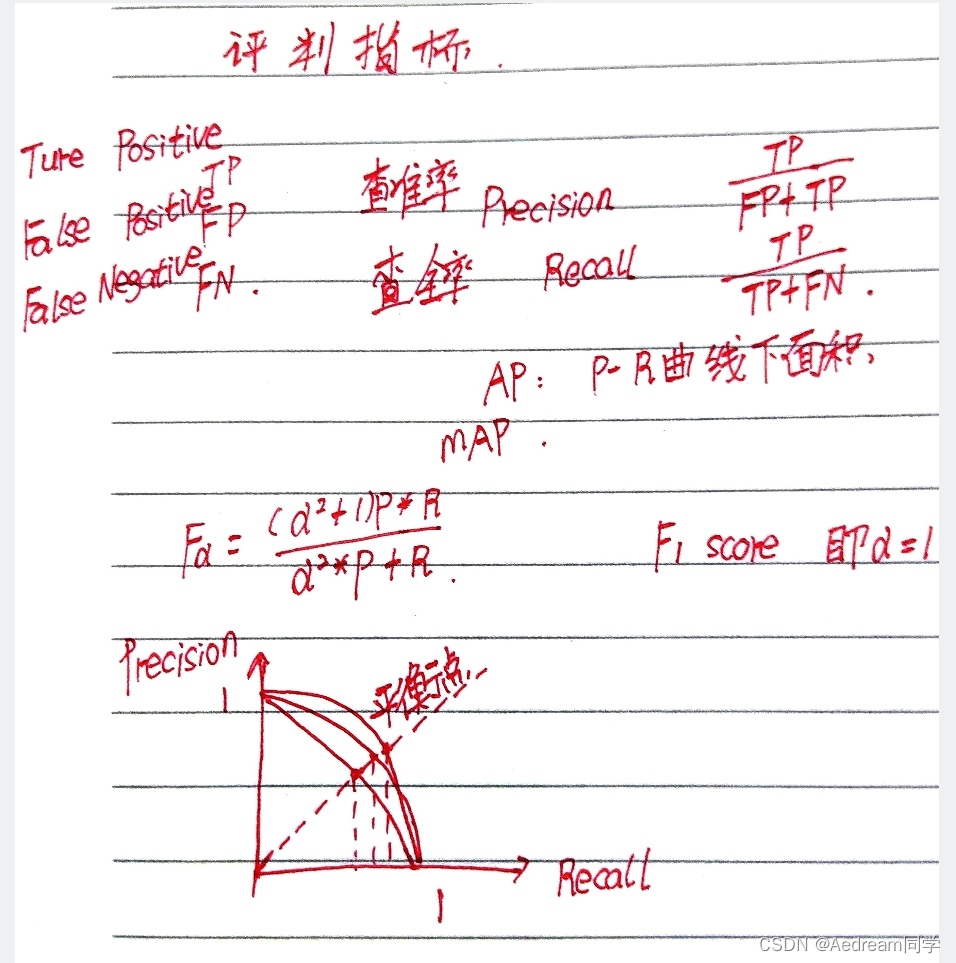 评判指标.
Ture Positive TP
False Positive FP
False Negative FN.
查准率 Precision TP / FP+TP
查全率 Recall TP / TP+FN.
AP: P-R曲线下面积,
mAP.
Fα = (α²+1)P*R / α²*P+R.
F1 score 即α=1
Precision
1
平衡点
Recall
1
CSDN @Aedream同学